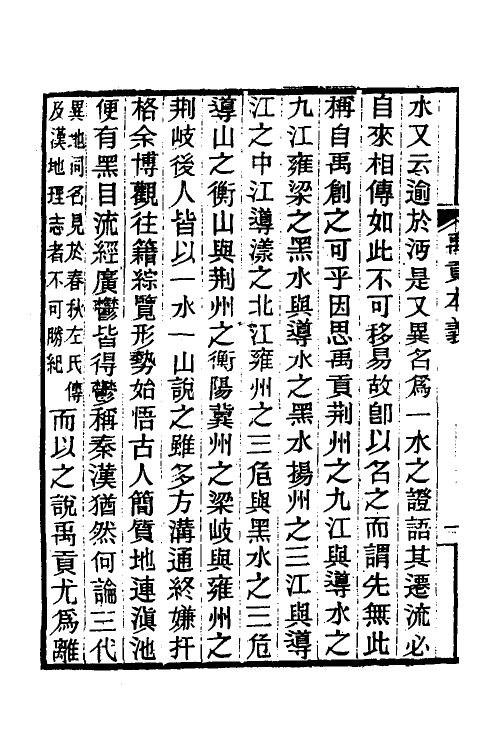 禹貢本義
水又云逾於沔是又異名爲一水之證語其遷流必
自來相傳如此不可移易故卽以名之而謂先無此
稱自禹創之可乎因思禹貢荆州之九江與導水之
九江雍梁之黑水與導水之黑水揚州之三江與導
江之中江導漾之北江雍州之三危與黑水之三危
導山之衡山與荆州之衡陽冀州之梁岐與雍州之
荆岐後人皆以一水一山說之雖多方溝通終嫌扞
格余博觀往籍綜覽形勢始悟古人簡質地連滇池
便有黑目流經廣鬱皆得鬱稱秦漢猶然何論三代
異地同名見於春秋左氏傳
及漢地理志者不可勝紀
而以之說禹貢尤爲離